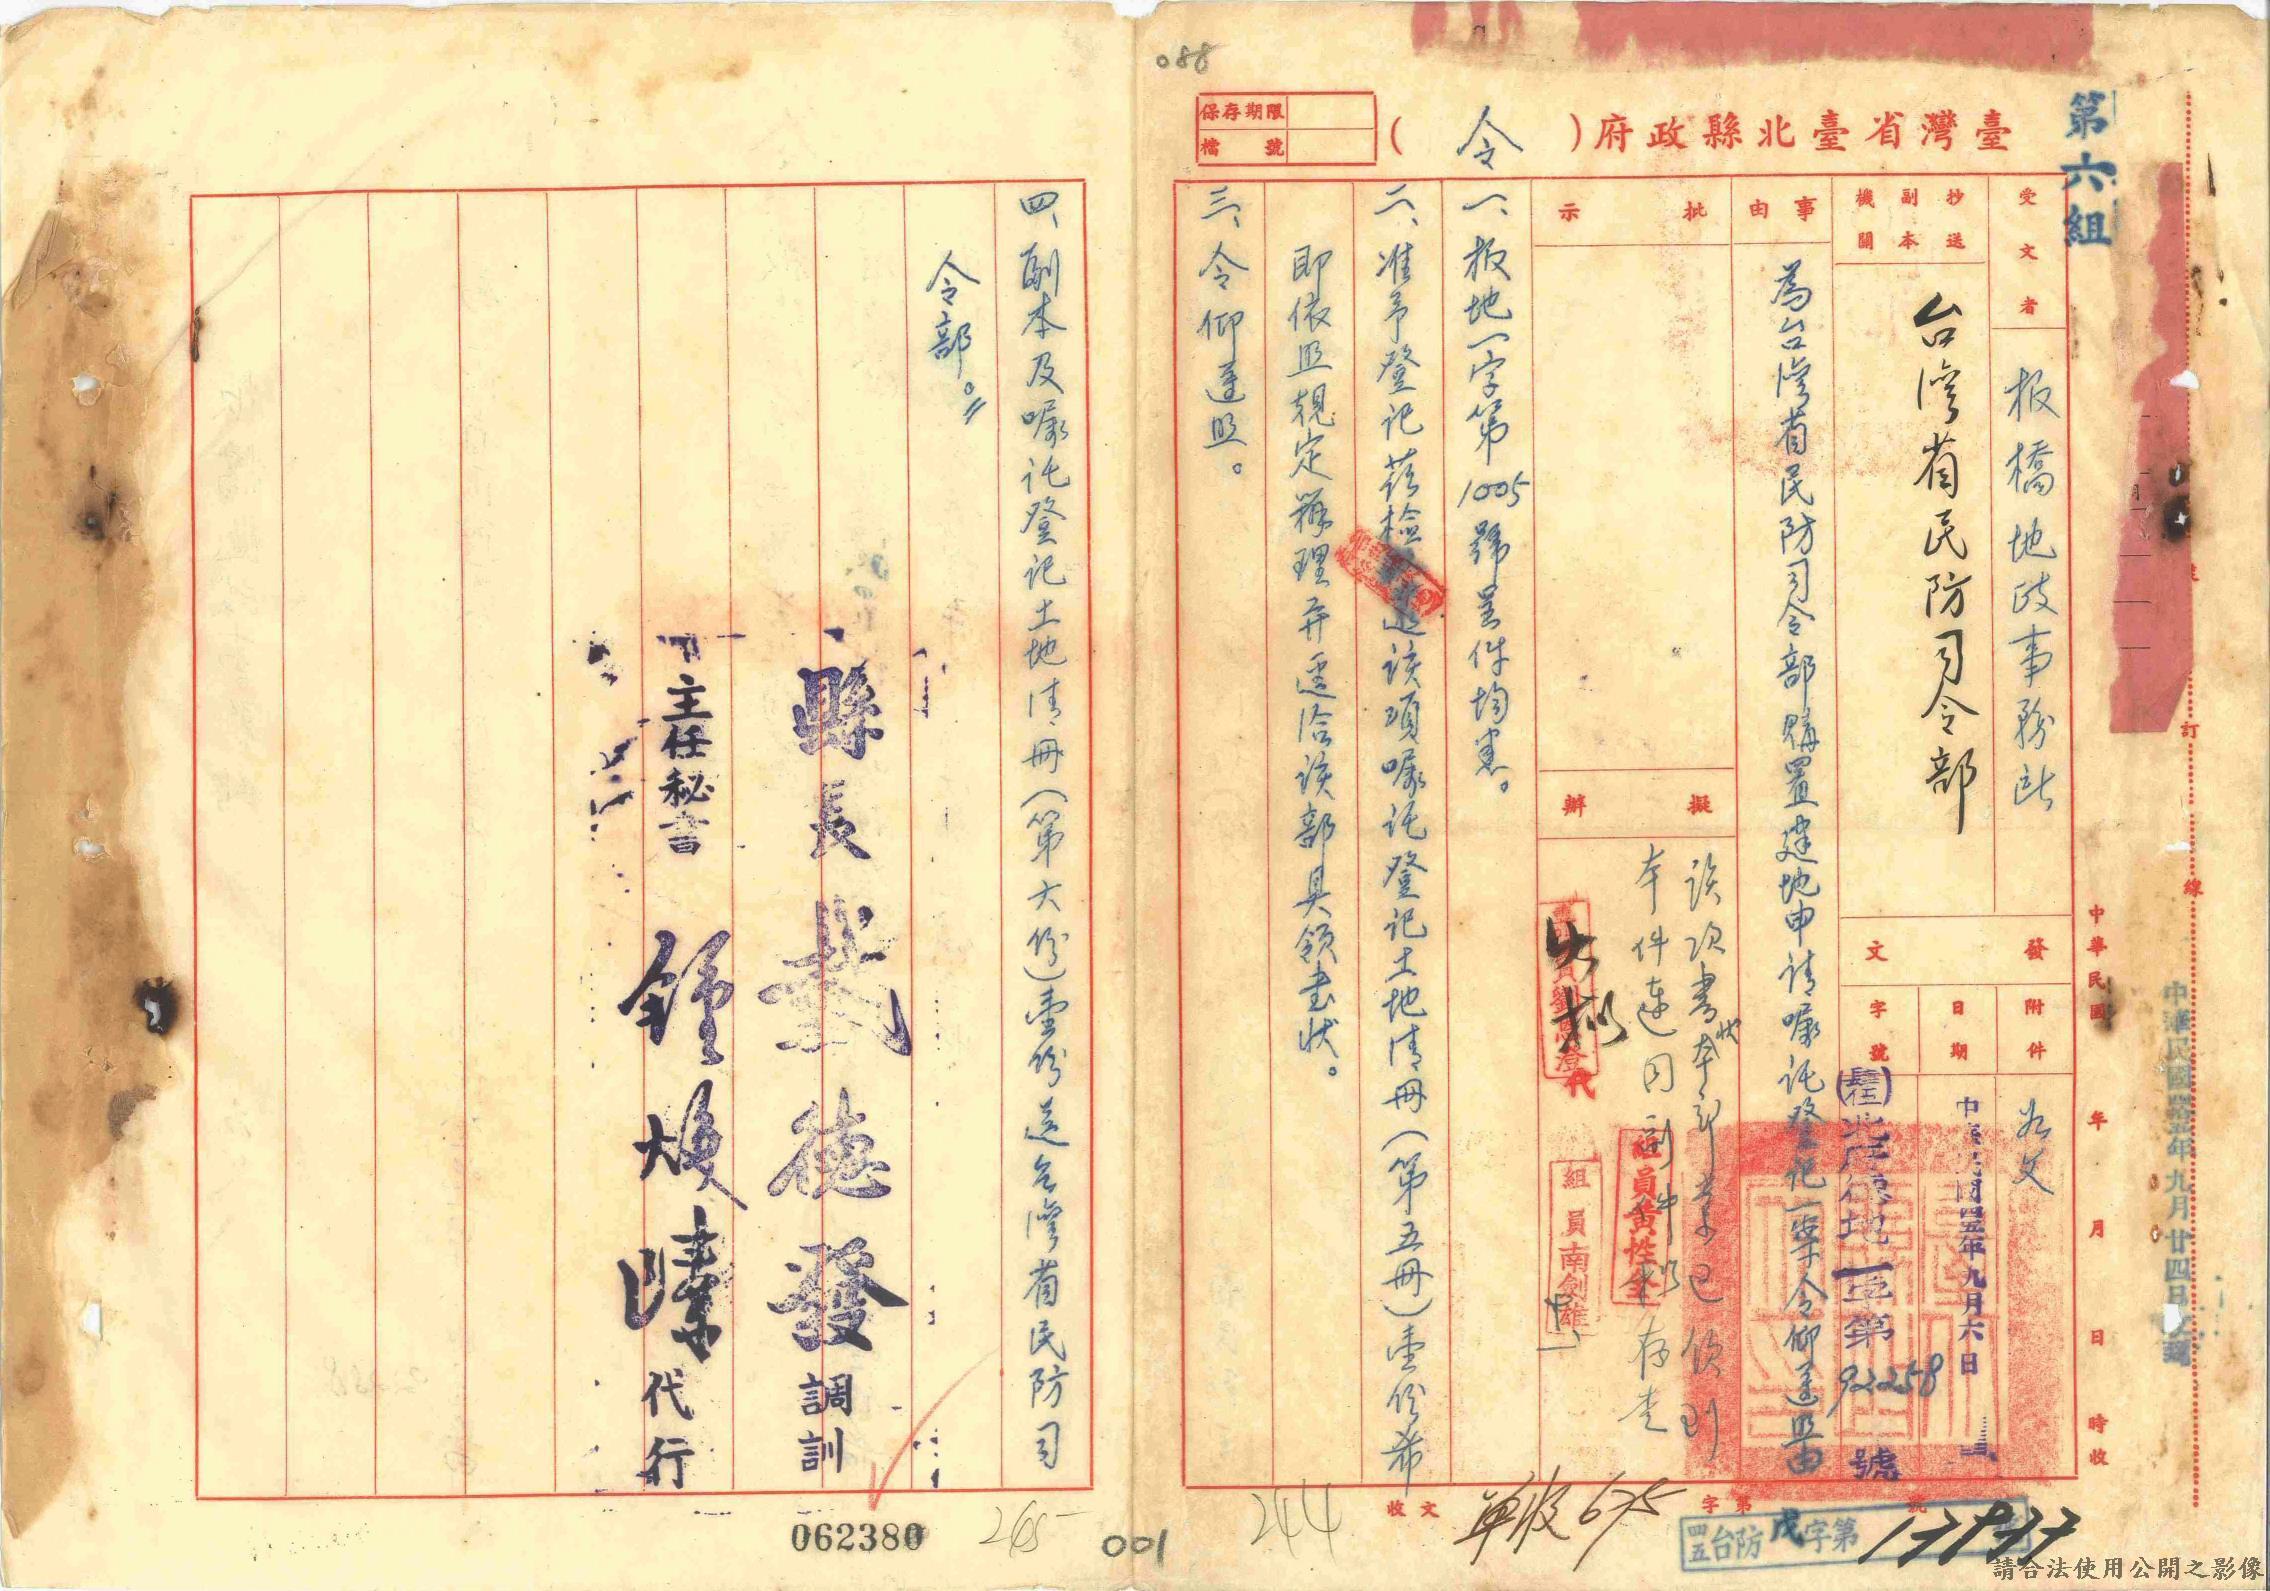 088
第六組
臺灣省臺北縣政府(令)
保存期限
檔號
受文者
板橋地政事務所
抄送副本機關
台灣省民防司令部
發文
附件
如文
日期
中華民國四五年九月六日
字號
(肆伍)北府德地一第92258號
事由
為台灣省民防司令部購置建地申請囑託登記一案令仰遵照由
批示
擬辦
該項書狀本部業已領到
本件連同副件擬存查
組員黃性全
組員南劍雄
代
一、板地一字第1005號呈件均悉。
二、准予登記茲檢該項囑託登記土地清冊(第五冊)壹份希
即依照規定辦理并逕洽該部具領書狀。
三、令仰遵照。
四、副本及囑託登記土地清冊(第六份)壹份送台灣省民防司
令部。
縣長 戴德發 調訓
主任秘書 鍾煥 代行
中華民國 年 月 日 時收
中華民國肆拾五年九月廿四日
訂
線
收文 字第 號
單收675
四五台防戊字第17877
244
265
001
062380
請合法使用公開之影像